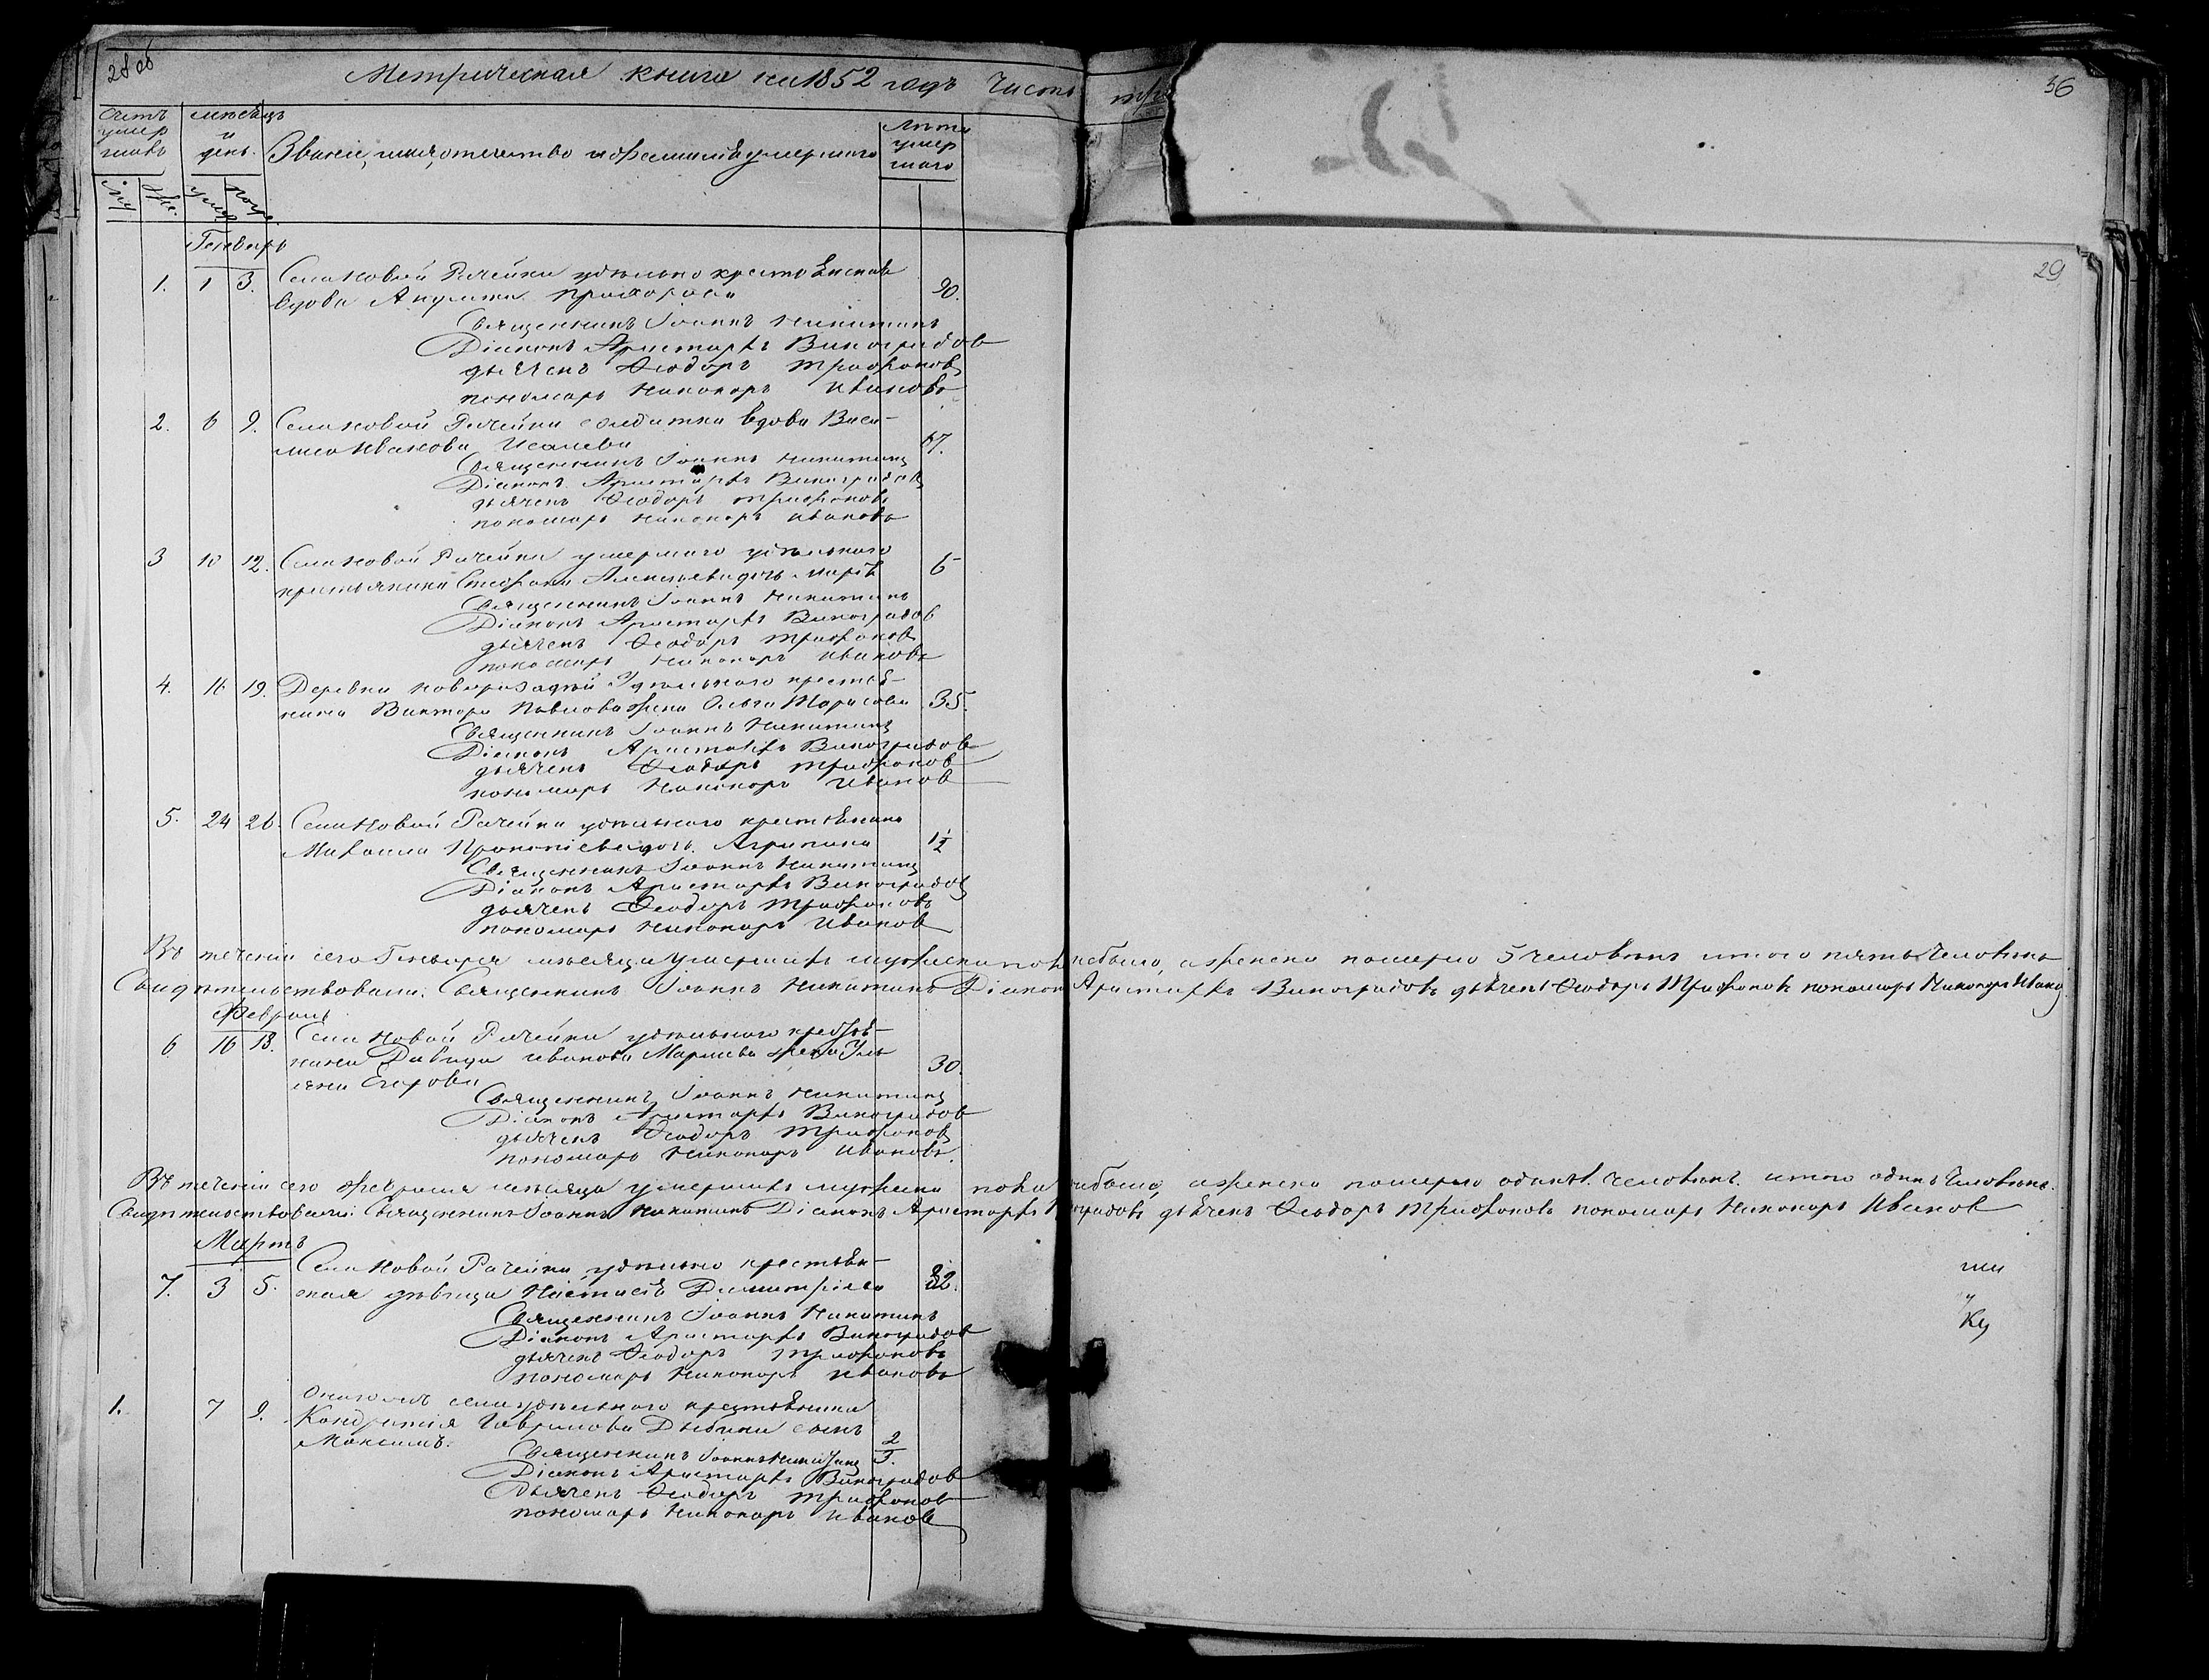 28 об
Метрическая книга на 1852 годъ Часть тре
36
Счетъ умершихъ
Мѣсяцъ и день.
Званіе, имя, отечество и фамилія умершаго
Лѣта умершаго
Муж. Жен. Умер. Погр.
29
Генварь
1. 1 3. Села Новой Рачейки удѣльно крестьянская
вдова Акулина Прохорова 90.
Священникъ Іоаннъ Никитинъ
Діаконъ Аристархъ Виноградовъ
дьячекъ Ѳеодоръ Трифоновъ
пономарь Никаноръ Ивановъ
2. 6 9. Села Новой Рачейки солдатка вдова Васи-
лиса Иванова Исалева 67.
Священникъ Іоаннъ Никитинъ
Діаконъ Аристархъ Виноградовъ
дьячекъ Ѳеодоръ Трифоновъ
пономарь Никаноръ Ивановъ
3 10 12. Села Новой Рачейки умершаго удѣльнаго
крестьянина Стефана Алексѣева дочь Марья 6
Священникъ Іоаннъ Никитинъ
Діаконъ Аристархъ Виноградов
дьячекъ Ѳеодоръ Трифоновъ
пономарь Никаноръ Ивановъ
4. 16 19. Деревни удѣльнаго крестья-
нина Виктора Павлова жена Ольга 35.
Священникъ Іоаннъ Никитинъ
Діаконъ Аристархъ Виноградов
дьячекъ Ѳеодоръ Трифонов
пономарь Никаноръ Иванов
5. 24 26. Села Новой Рачейки удѣльнаго крестьянина
Михаила Прокопіева дочь Агрипина 1½
Священникъ Іоаннъ Никитинъ
Діаконъ Аристархъ Виноградовъ
дьячекъ Ѳеодоръ Трифоновъ
пономарь Никаноръ Иванов
Въ теченіи сего Генваря мѣсяца умершихъ мужеска пола небыло, а женска померло 5 человѣкъ итого пять человѣкъ
Свидѣтельствовали: Священникъ Іоаннъ Никитинъ Діаконъ Аристархъ Виноградовъ дьячекъ Ѳеодоръ Трифоновъ пономарь Никаноръ Ивановъ
Февраль
6 16 18. Села Новой Рачейки удѣльнаго крестья-
нина Давида Иванова жена Уль
яна Егорова 30.
Священникъ Іоаннъ Никитинъ
Діаконъ Аристархъ Виноградов
дьячекъ Ѳеодоръ Трифоновъ
пономарь Никаноръ Ивановъ.
Въ теченіи сего февраля мѣсяца умершихъ мужеска пола небыло, а женска померло одинъ человѣкъ. итого одинъ человѣкъ.
Свидѣтельствовали: Священникъ Іоаннъ Никитинъ Діаконъ Аристархъ Виноградовъ дьячекъ Ѳеодоръ Трифоновъ пономарь Никаноръ Иванов
Мартъ
7. 3 5. Села Новой Рачейки удѣльно крестьян-
ская дѣвица Настасья Димитріева 32.
Священникъ Іоаннъ Никитинъ
Діаконъ Аристархъ Виноградов
дьячекъ Ѳеодоръ Трифоновъ
пономарь Никаноръ Ивановъ
1. 7 9. села удѣльнаго крестьянина
Кондратія Гаврилова Дыбина сынъ
Максимъ.
Священникъ Іоаннъ Никитинъ
Діаконъ Аристархъ Виноградов
Дьячекъ Ѳеодоръ Трифонов
пономарь Никаноръ Иванов